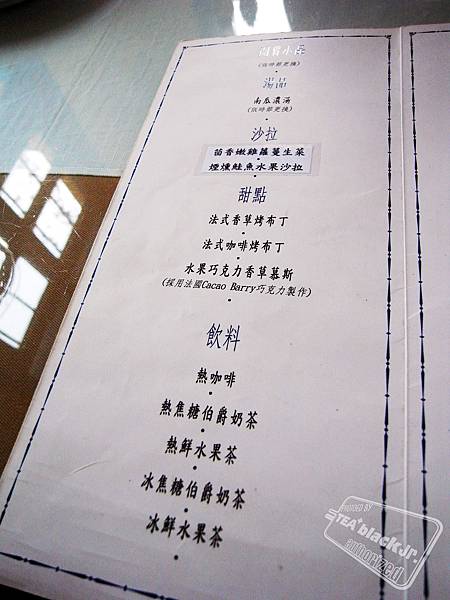 開胃小品
(依時節更換)
湯品
南瓜濃湯
(依時節更換)
沙拉
茴香嫩雞蘿蔓生菜
煙燻鮭魚水果沙拉
甜點
法式香草烤布丁
法式咖啡烤布丁
水果巧克力香草慕斯
(採用法國Cacao Barry巧克力製作)
飲料
熱咖啡
熱焦糖伯爵奶茶
熱鮮水果茶
冰焦糖伯爵奶茶
冰鮮水果茶
PROVIDED BY
TEA+blackJr.
authorized!